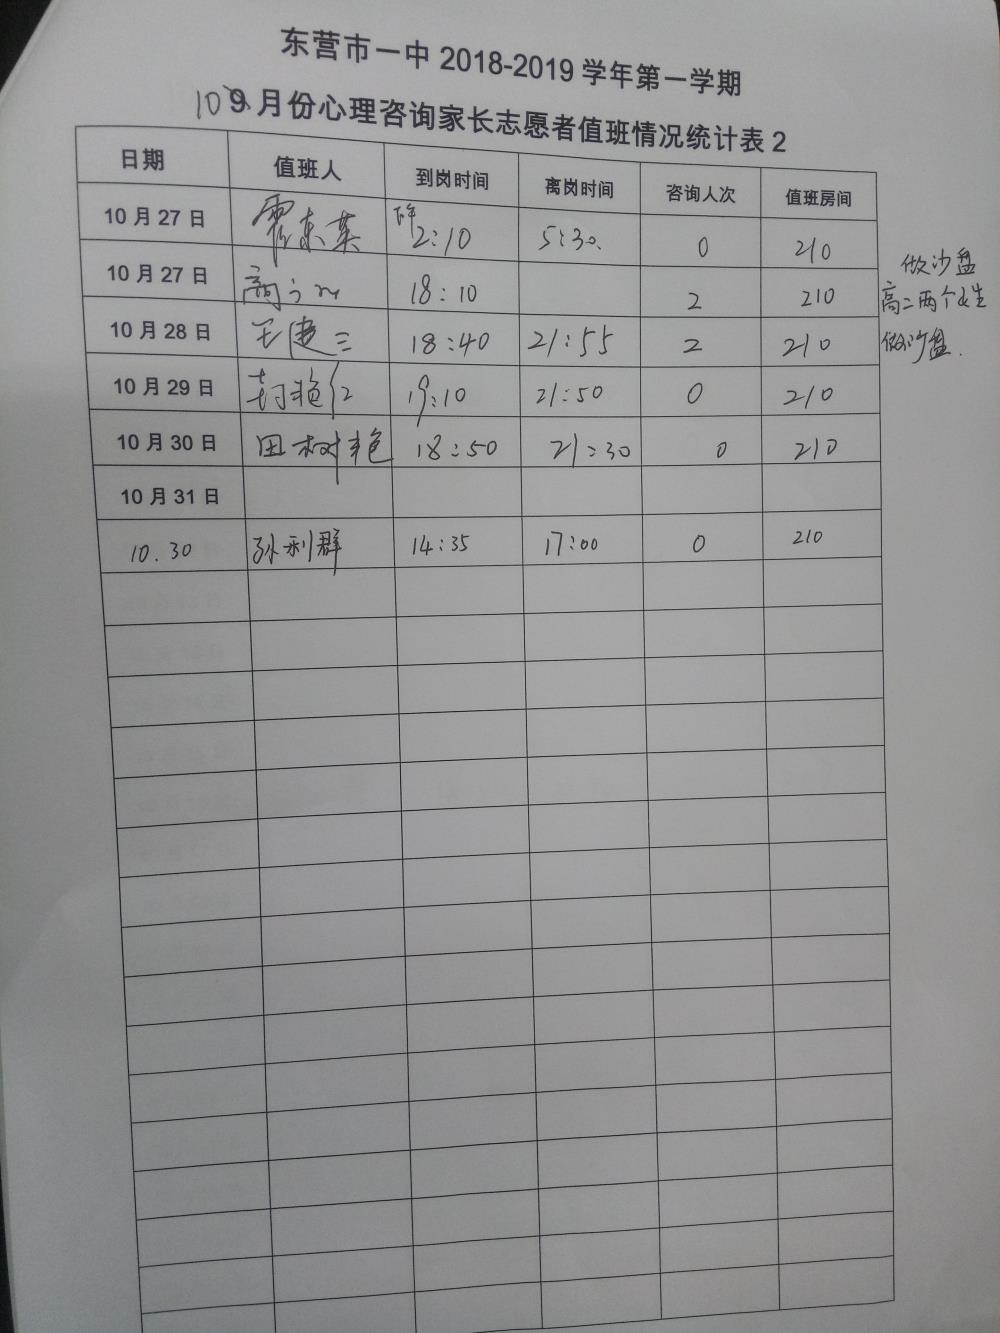 东营市一中 2018-2019 学年第一学期
10 9月份心理咨询家长志愿者值班情况统计表 2
日期 值班人 到岗时间 离岗时间 咨询人次 值班房间
10 月 27 日 霍东英 下午2:10 5:30. 0 210
做沙盘
10 月 27 日 18:10 2 210
高二两个女生
10 月 28 日 王建三 18:40 21:55 2 210
做沙盘.
10 月 29 日 19:10 21:50 0 210
10 月 30 日 田树艳 18:50 21:30 0 210
10 月 31 日
10.30 孙利群 14:35 17:00 0 210